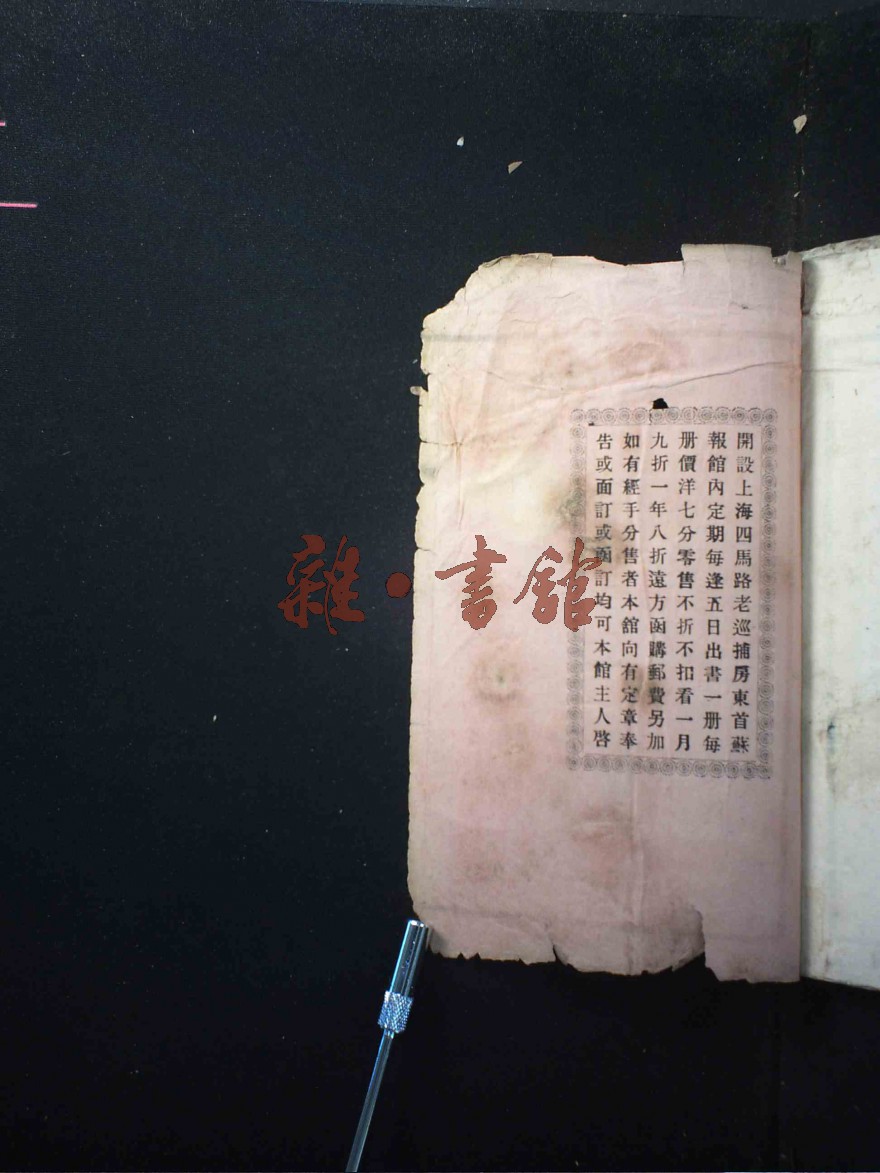 開設上海四馬路老巡捕房東首蘇
報館內定期每逢五日出書一册每
册價洋七分零售不折不扣看一月
九折一年八折遠方函購郵費另加
如有經手分售者本舘向有定章奉
告或面訂或函訂均可本館主人啓
雜·書館